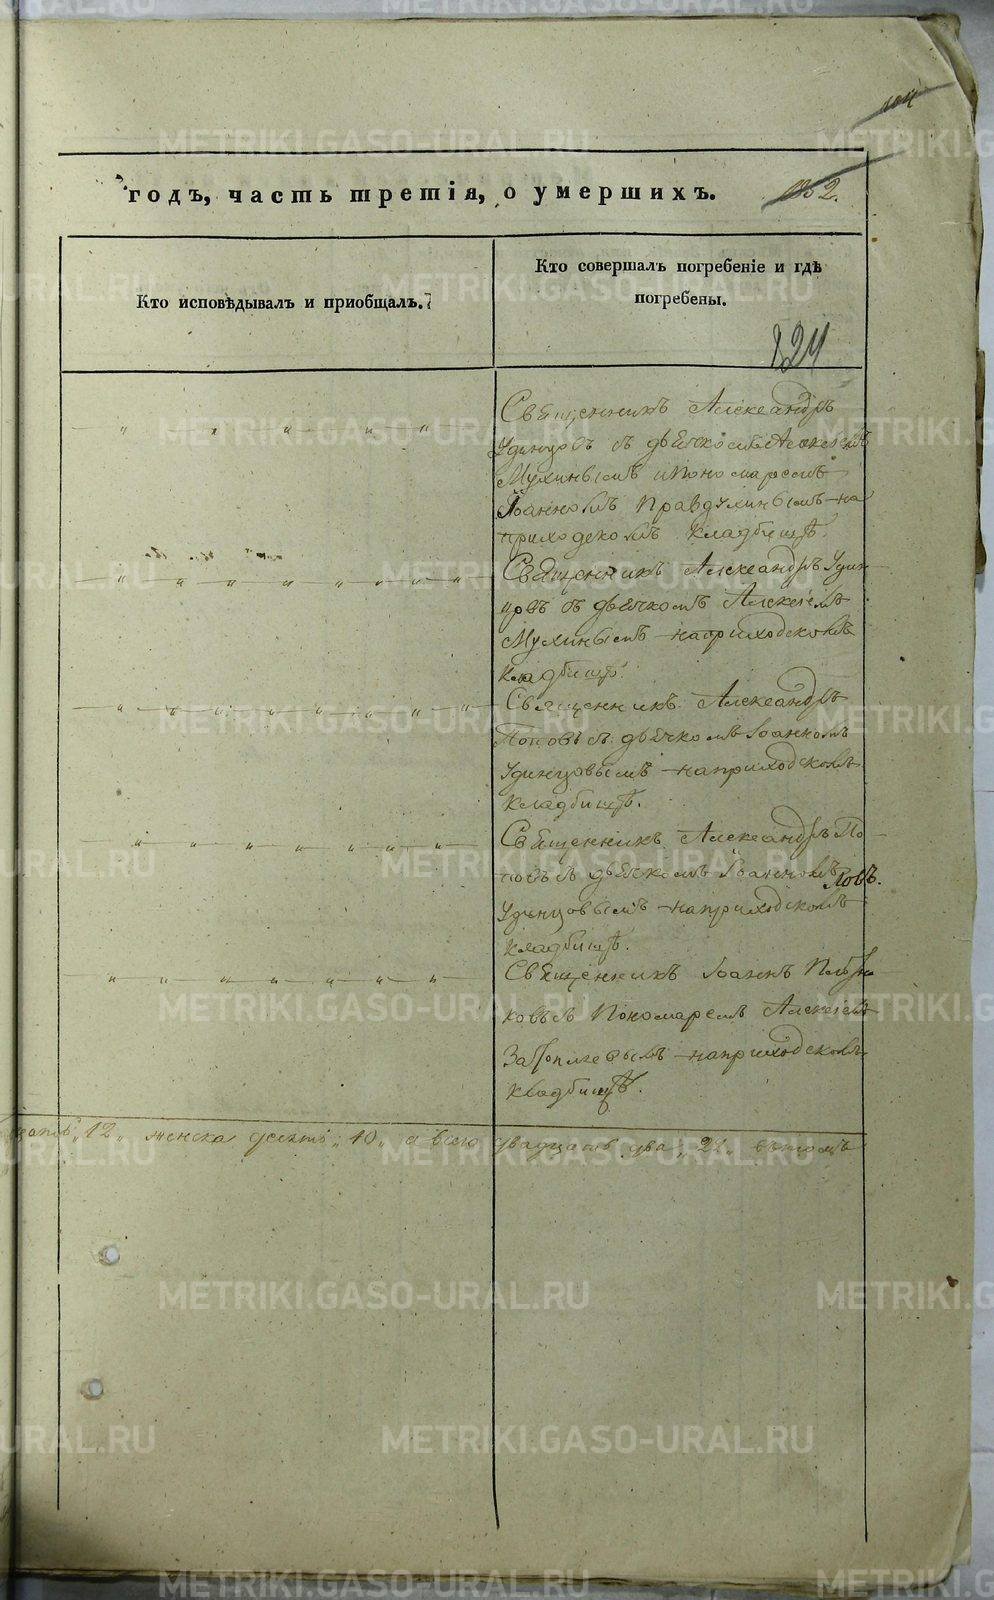 годъ, часть третія, о умершихъ.
Кто исповѣдывалъ и пріобщалъ.
Кто совершалъ погребеніе и гдѣ
погребены.
124
Священникъ Александръ
Удинцовъ съ дьячкомъ Алексѣемъ
Мухинымъ и Пономаремъ
Іоанномъ Правдухинымъ на
приходскомъ Кладбищѣ.
Священникъ Александръ Удин-
цовъ съ дьячкомъ Алексѣемъ
Мухинымъ на приходскомъ
Кладбищѣ.
Священникъ Александръ
Поповъ съ дьячкомъ Іоанномъ
Удинцовымъ на приходскомъ
кладбищѣ.
Священникъ Александръ По-
повъ съ дьячкомъ Іоанномъ
Удинцовымъ на приходскомъ
кладбищѣ.
Священникъ Іоаннъ
ковъ съ Пономаремъ Алексѣемъ
на приходскомъ
кладбищѣ.
„12„ женска десять „10„ а всего двадцать два „22„
METRIKI.GASO-URAL.RU